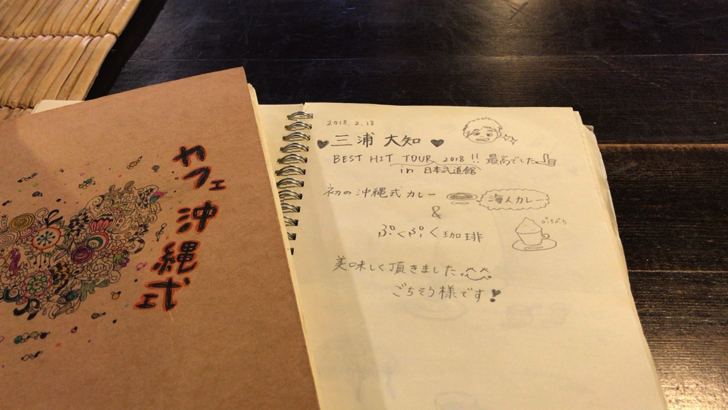 カフェ 沖縄式
2018.2.18
♥三浦 大知♥
BEST HIT TOUR 2018!! 最高でした
in 日本武道館
初の沖縄式カレー
海人カレー
&
ぷくぷく珈琲
ぷくぷく
美味しく頂きました
ごちそう様です!